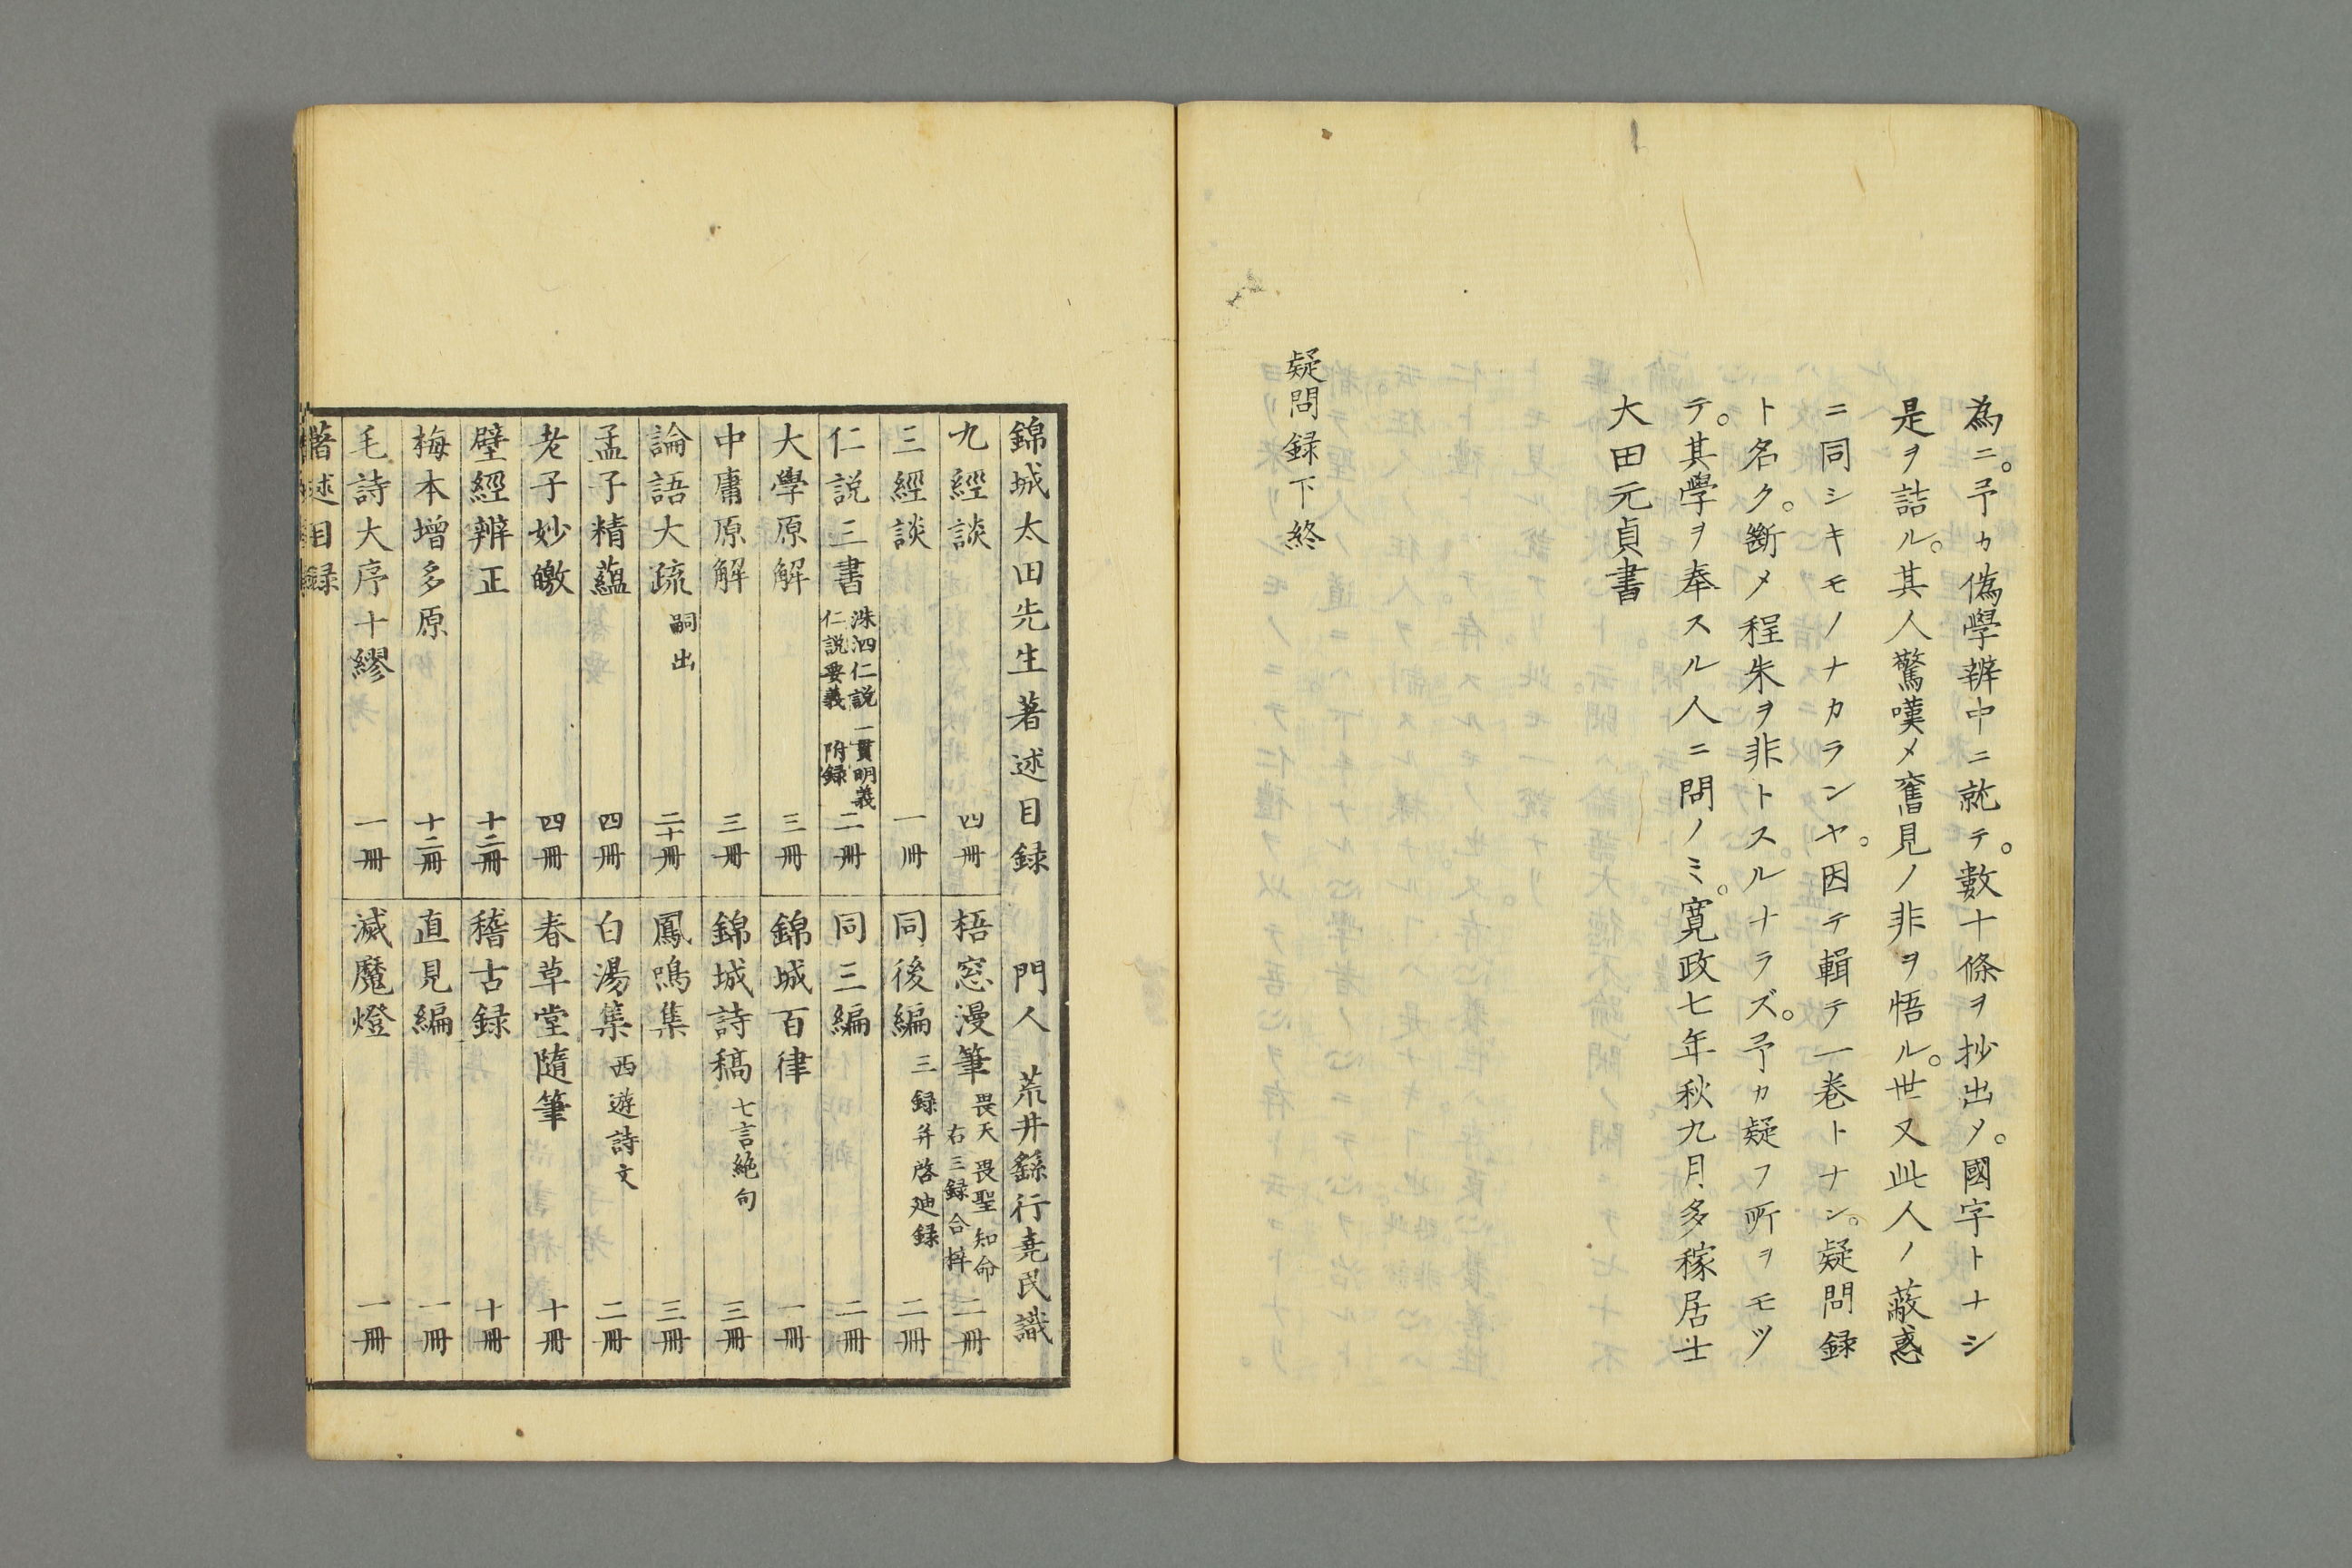 為ニ。予カ偽學辨中ニ就テ。數十條ヲ抄出メ。國字トナシ
是ヲ詰ル。其人驚嘆メ奮見ノ非ヲ悟ル。世又此人ノ蔽惑
ニ同シキモノナカランヤ。因テ輯テ一卷トナシ。疑問録
ト名ク。斷メ程朱ヲ非トスルナラズ。予カ疑フ所ヲモツ
テ。其學ヲ奉スル人ニ問ノミ。寛政七年秋九月多稼居士
大田元貞書
疑問録下終
錦城太田先生著述目録 門人 荒井繇行堯民識
九經談 四冊
三經談 一冊
仁説三書 洙泗仁説 一貫明義 仁説要義 附録 二冊
大學原解 三冊
中庸原解 三冊
論語大疏 嗣出 二十冊
孟子精蘊 四冊
老子妙皦 四冊
壁經辨正 十二冊
梅本増多原 十二冊
毛詩大序十繆 一冊
梧窓漫筆 畏天 畏聖 知命 右三録合梓 二冊
同後編 三録并啓廸録 二冊
同三編 二冊
錦城百律 一冊
錦城詩稿 七言絶句 三冊
鳳鳴集 三冊
白湯集 西遊詩文 二冊
春草堂隨筆 十冊
稽古録 十冊
直見編 一冊
滅魔燈 一冊
著述目録